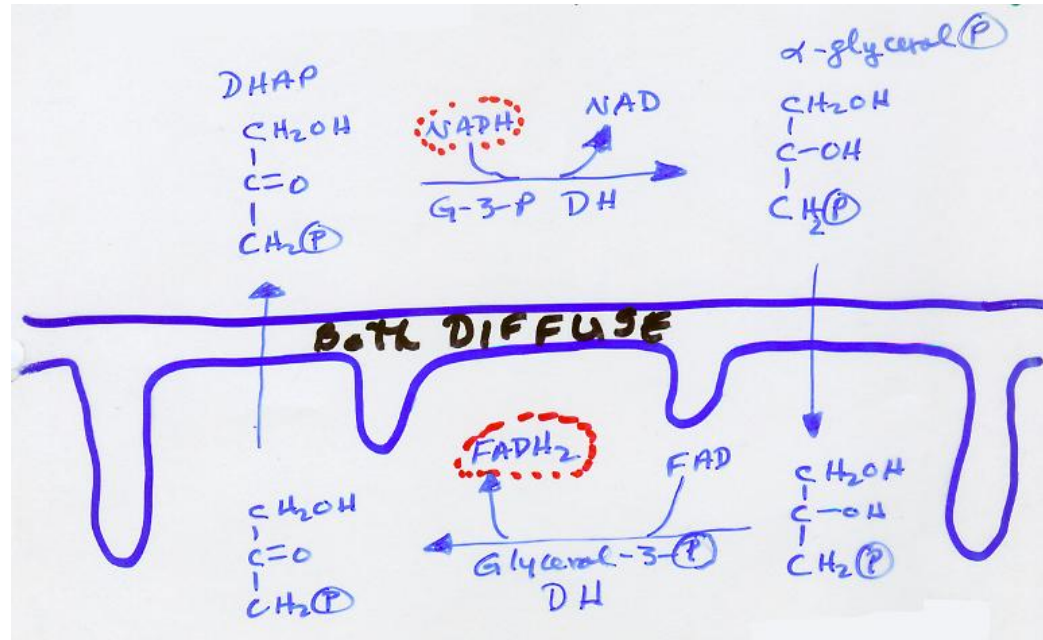 DHAP
CH2OH
C=O
CH2P
NADH
NAD
G-3-P DH
α-glycerol P
CH2OH
C-OH
CH2P
Both DIFFUSE
FADH2
FAD
Glycerol-3-P
DH
CH2OH
C=O
CH2P
CH2OH
C-OH
CH2P